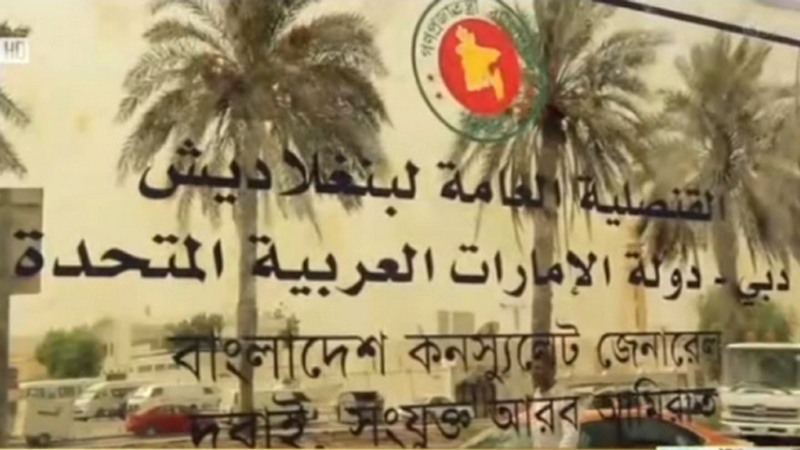 HD
القنصلية العامة لبنغلاديش
دبي - دولة الإمارات العربية المتحدة
বাংলাদেশ কনস্যুলেট জেনারেল
দুবাই, সংযুক্ত আরব আমিরাত